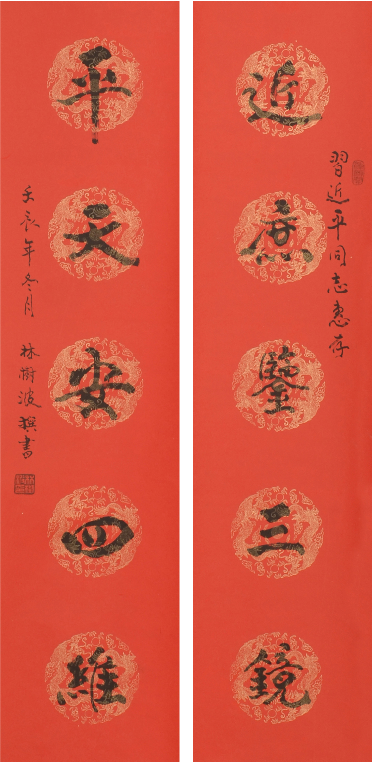 習近平同志惠存
近庶鑒三鏡
平天安四維
壬辰年冬月 林樹波撰書